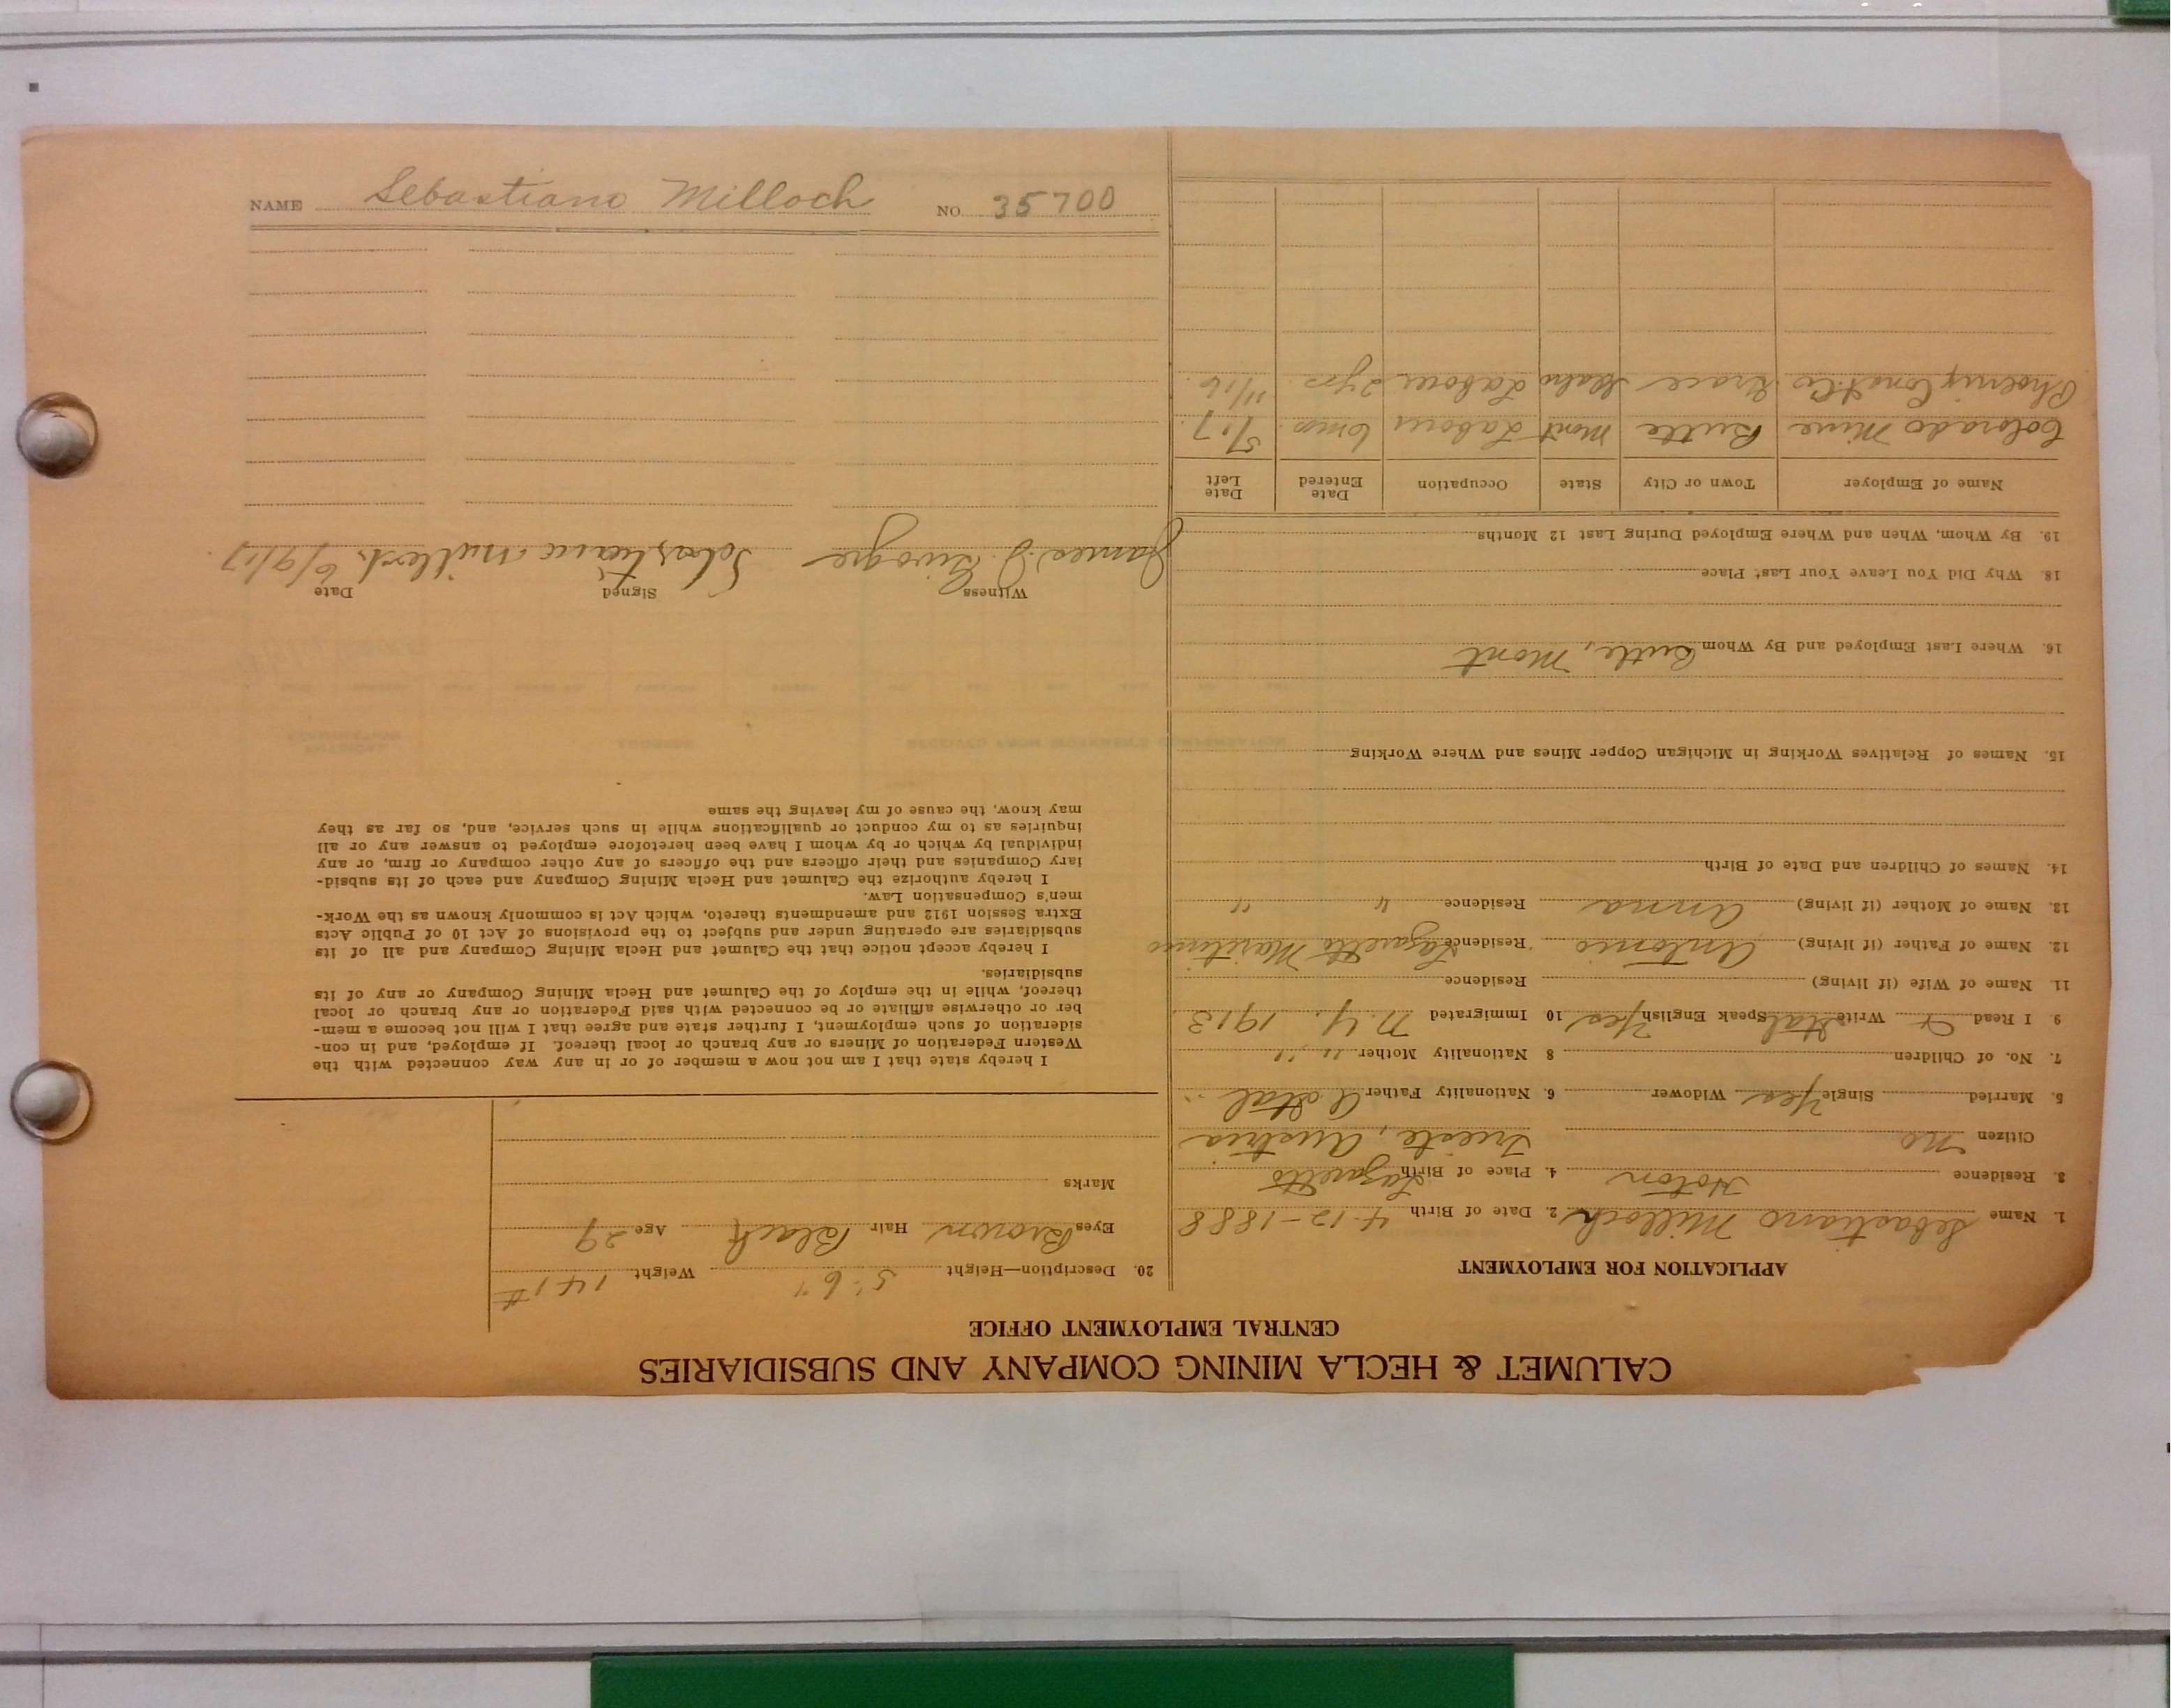 CALUMET & HECLA MINING COMPANY AND SUBSIDIARIES
CENTRAL EMPLOYMENT OFFICE
APPLICATION FOR EMPLOYMENT
1. Name Sebastiano Milloch 2. Date of Birth 4-12-1888
3. Residence Hoton 4. Place of Birth Lazaretto
Citizen no Trieste, Austria
5. Married Single Yes Widower 6. Nationality Father A Ital
7. No. of Children 8 Nationality Mother " "
9. I Read & Write Ital Speak English Yes 10 Immigrated N.Y. 1913
11. Name of Wife (if living) Residence
12. Name of Father (if living) Antonio Residence Lazaretto Maritimo
13. Name of Mother (if living) Anna Residence " "
14. Names of Children and Date of Birth
15. Names of Relatives Working in Michigan Copper Mines and Where Working
16. Where Last Employed and By Whom Butte, Mont
18. Why Did You Leave Your Last Place
19. By Whom, When and Where Employed During Last 12 Months
Name of Employer Town or City State Occupation Date Entered Date Left
Colorado Mine Butte Mont Labour 6 mos 5/17
Phoenix Const. Co Grace Idaho Labour 2 yrs 11/16
20. Description—Height 5' 6" Weight 141#
Eyes Brown Hair Black Age 29
Marks
I hereby state that I am not now a member of or in any way connected with the
Western Federation of Miners or any branch or local thereof. If employed, and in con-
sideration of such employment, I further state and agree that I will not become a mem-
ber or otherwise affiliate or be connected with said Federation or any branch or local
thereof, while in the employ of the Calumet and Hecla Mining Company or any of its
subsidiaries.
I hereby accept notice that the Calumet and Hecla Mining Company and all of its
subsidiaries are operating under and subject to the provisions of Act 10 of Public Acts
Extra Session 1912 and amendments thereto, which Act is commonly known as the Work-
men's Compensation Law.
I hereby authorize the Calumet and Hecla Mining Company and each of its subsid-
iary Companies and their officers and the officers of any other company or firm, or any
individual by which or by whom I have been heretofore employed to answer any or all
inquiries as to my conduct or qualifications while in such service, and, so far as they
may know, the cause of my leaving the same
Witness Signed Date
James J. Sebastiano Milloch 6/9/17
NAME Sebastiano Milloch NO. 35700